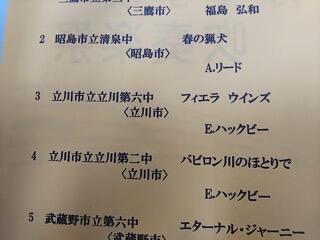 〈三鷹市〉 福島 弘和
2 昭島市立清泉中 春の猟犬
〈昭島市〉
A.リード
3 立川市立立川第六中 フィエラ ウインズ
〈立川市〉
E.ハックビー
4 立川市立立川第二中 バビロン川のほとりで
〈立川市〉
E.ハックビー
5 武蔵野市立第六中 エターナル・ジャーニー
〈武蔵野市〉